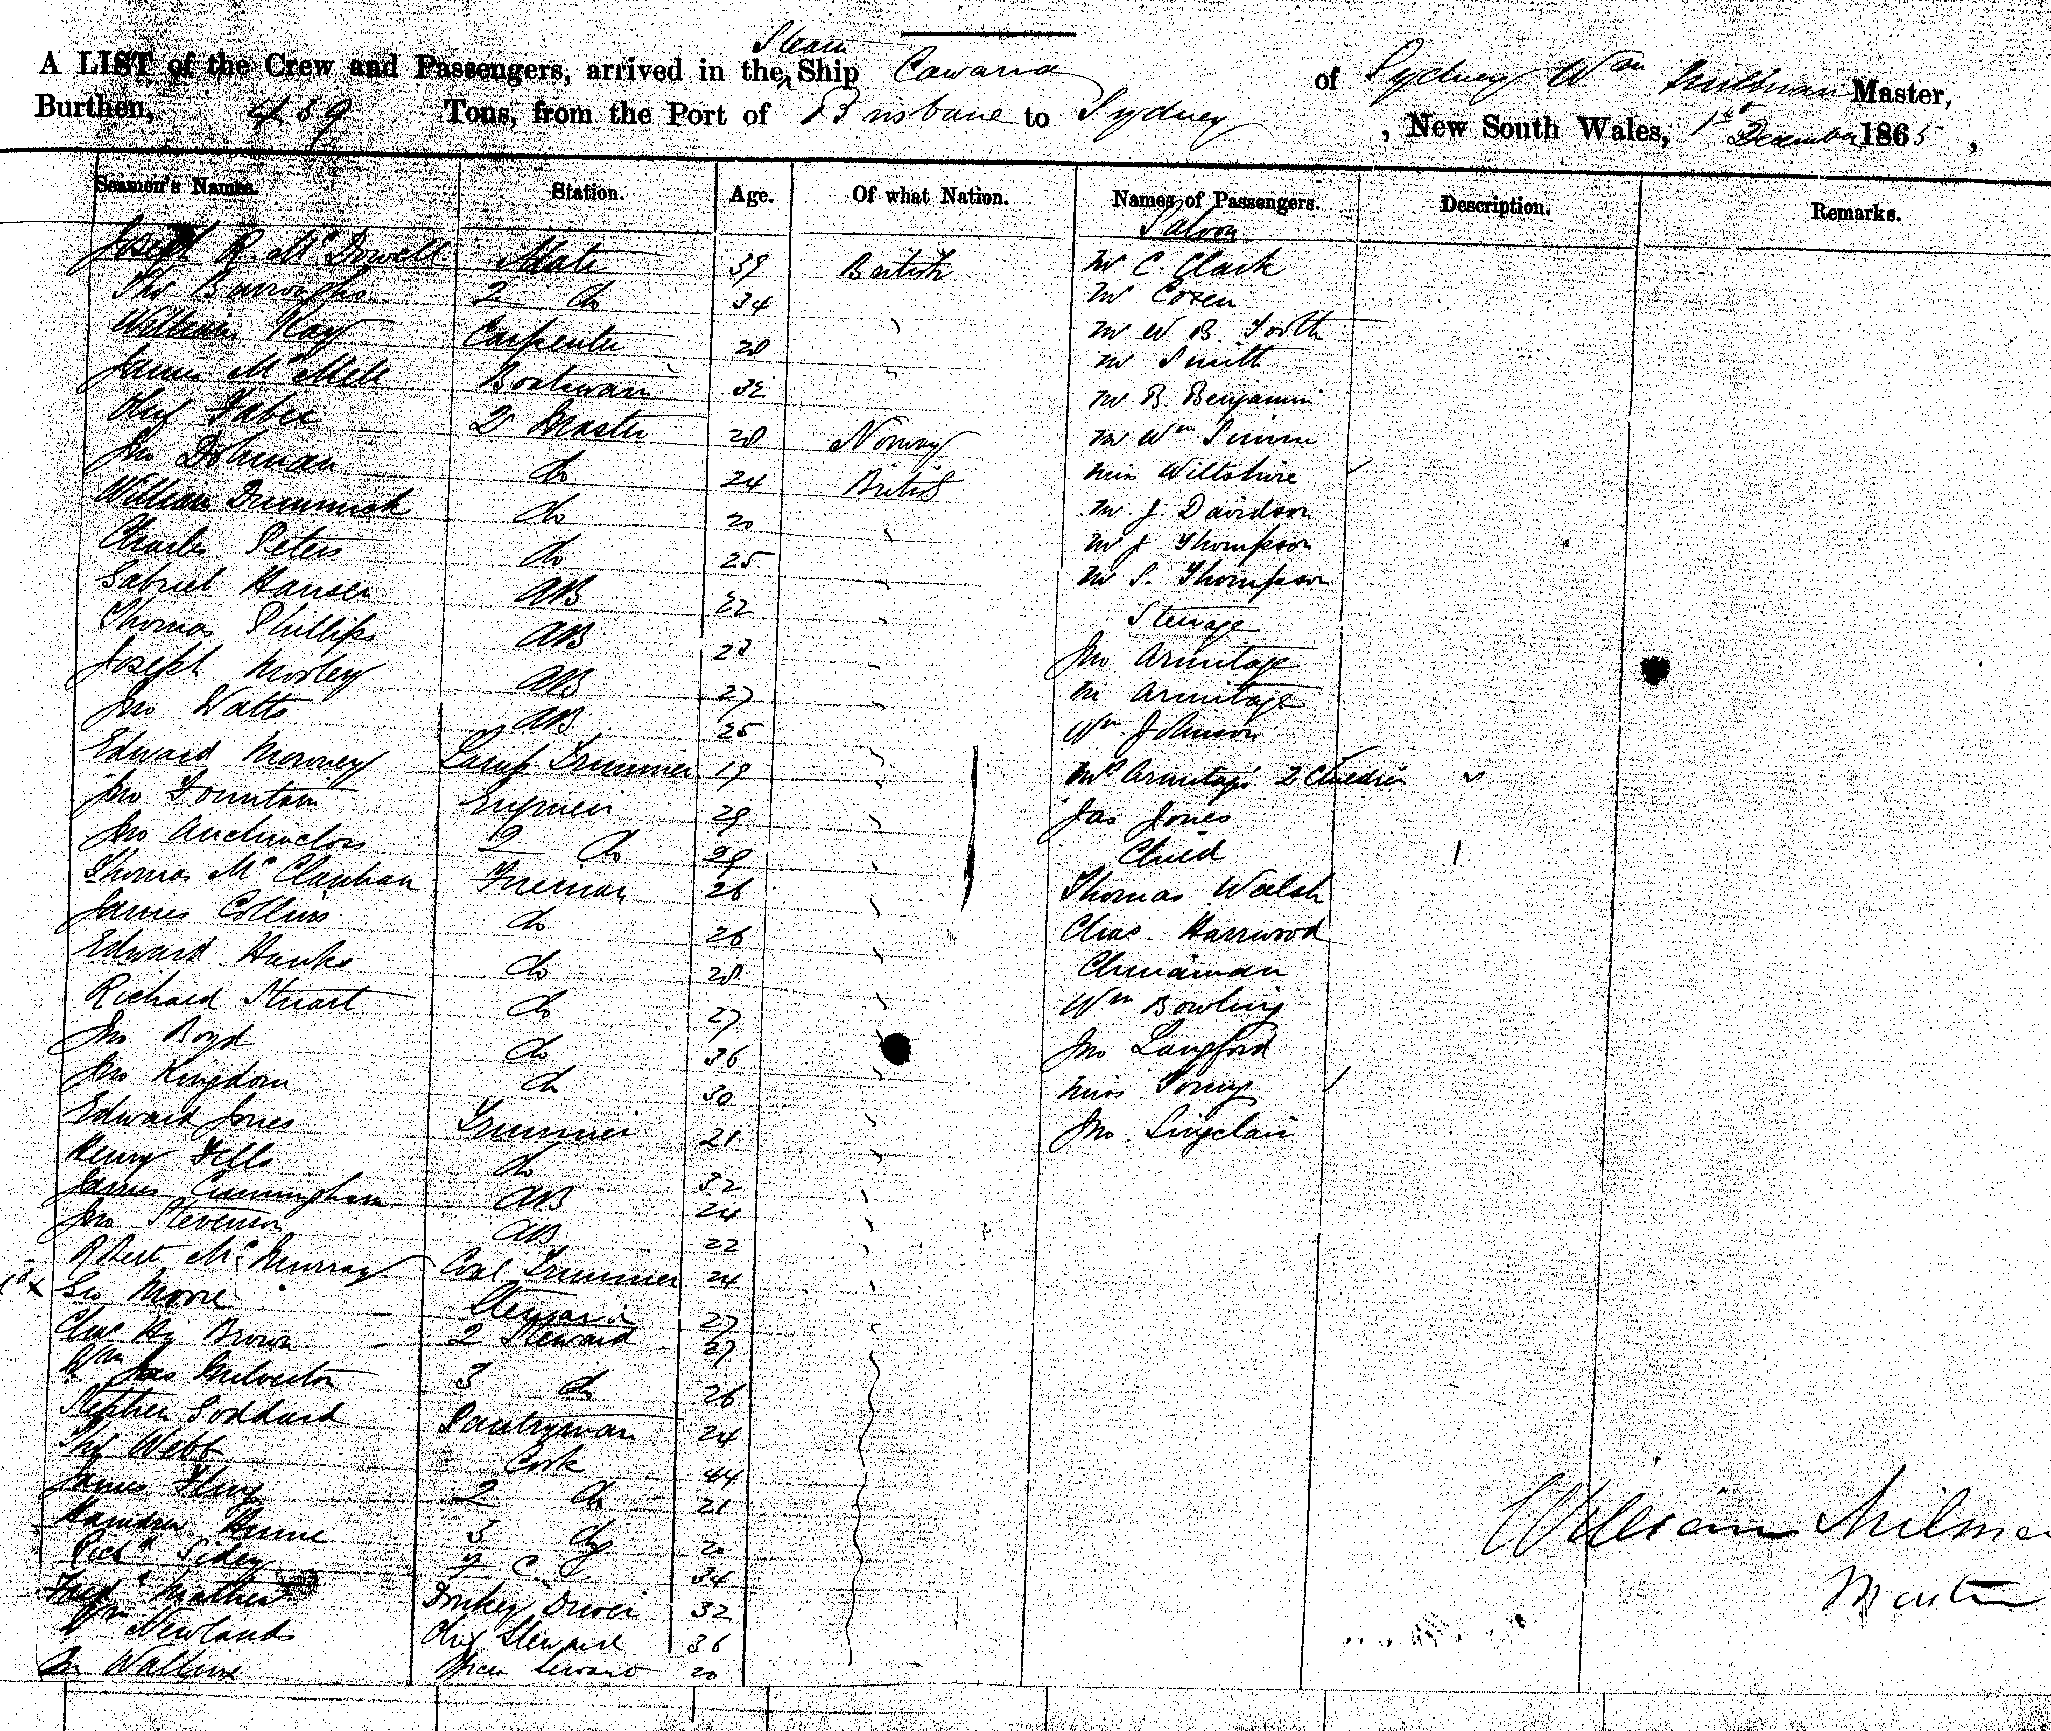 Steam
A LIST of the Crew and Passengers, arrived in the Ship Cawarra of Sydney Wm Milman Master,
Burthen, 439 Tons, from the Port of Brisbane to Sydney, New South Wales, 1st December 1865,
Seamen's Names. Station. Age. Of what Nation. Names of Passengers. Description. Remarks.
Saloon
Joseph R. McDowell Mate 39 British Mr C. Clark
Thos Burroughs 2 do 34 Mr Cozen
William Kay Carpenter 28 Mr W B. Tooth
James McMell Boatswain 32 Mr Smith
Oluf 2 Master 28 Norway Mr B. Benjamin
Jno Dohman do 24 British Mr Wm
William do 20 Miss Wiltshire
Charles Peters do 25 Mr J. Davidson
Gabriel Hansen AB 22 Mr J Thompson
Thomas Phillips AB 28 Mr S. Thompson
Joseph Morley AB 27 Steerage
Jno Watts AB 25 Jno Armitage
Edward Lamp Trimmer 19 M Armitage
Jno Fountain Engineer 29 Wm Johnson
Jno 2 do 29 Mrs Armitage 2 Children
Thomas Fireman 26 Jas Jones
James Collins do 26 Child 1
Edward Hanks do 28 Thomas Walsh
Richard Stuart do 27 Chas Harrwood
Jno Boyd do 36 Chinaman
Jno Kingdom do 30 Wm Bowling
Edward Jones Trimmer 21 Jno Langford
Henry Fells do 32 Miss
James Cunningham AB 24 Jno Singclair
Jno Stevenson AB 22
Robert McMurray Coal Trimmer 24
Geo Moore Steward 27
Chas Hy Brown 2 Steward
Wm Jas 3 do 26
Stephen Goddard Pantryman 24
Webb Cook 44
James 2 do 21
Hume 3 do 20
Richd 34
Fredk Mathews Donkey Driver 32
Wm Newlands Steward 36
20
William Milman
Master